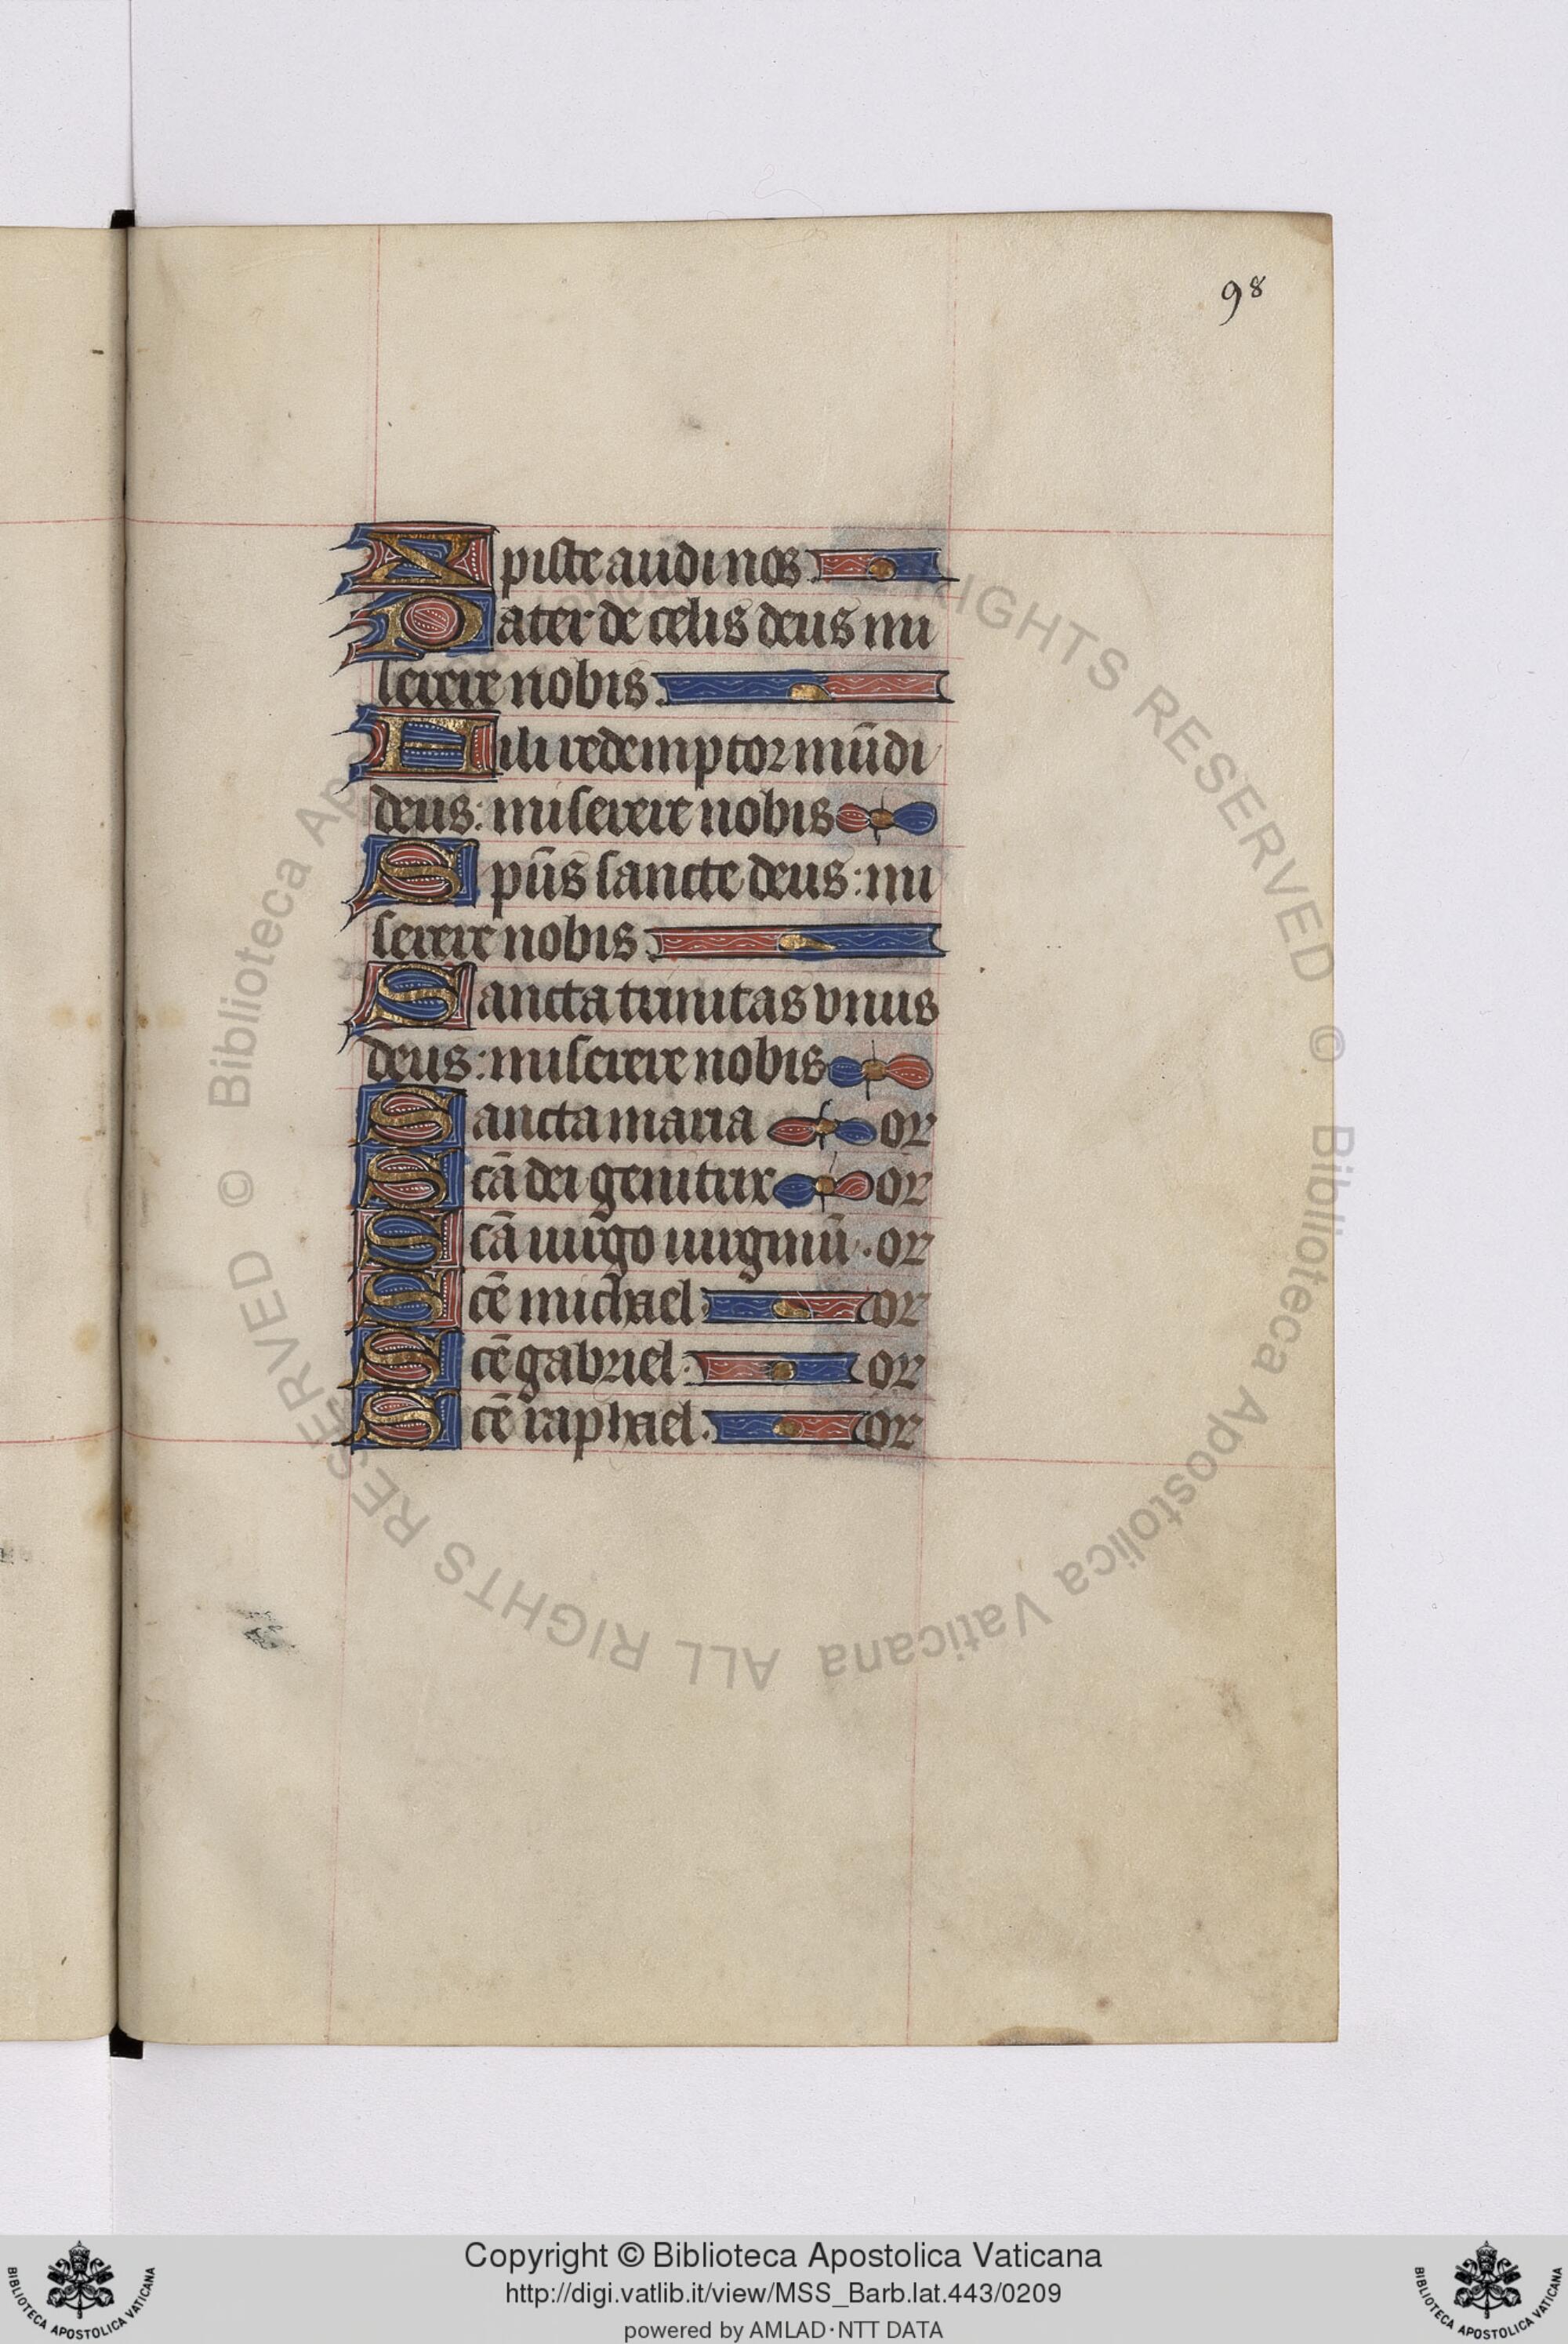 98
Xpiste audi nos.
Pater de celis deus mi
serere nobis.
Fili redemptor mūdi
deus: miserere nobis
Sp̄us sancte deus: mi
serere nobis:
Sancta trinitas vnus
deus: miserere nobis
Sancta maria or
Scā dei genitrix or
Scā uirgo uirginū. or
Scē michael. or
Scē gabriel. or
Scē raphael. or
© Biblioteca Apostolica Vaticana ALL RIGHTS RESERVED © Biblioteca Apostolica Vaticana ALL RIGHTS RESERVED
BIBLIOTECA APOSTOLICA VATICANA
Copyright © Biblioteca Apostolica Vaticana
http://digi.vatlib.it/view/MSS_Barb.lat.443/0209
powered by AMLAD·NTT DATA
BIBLIOTECA APOSTOLICA VATICANA